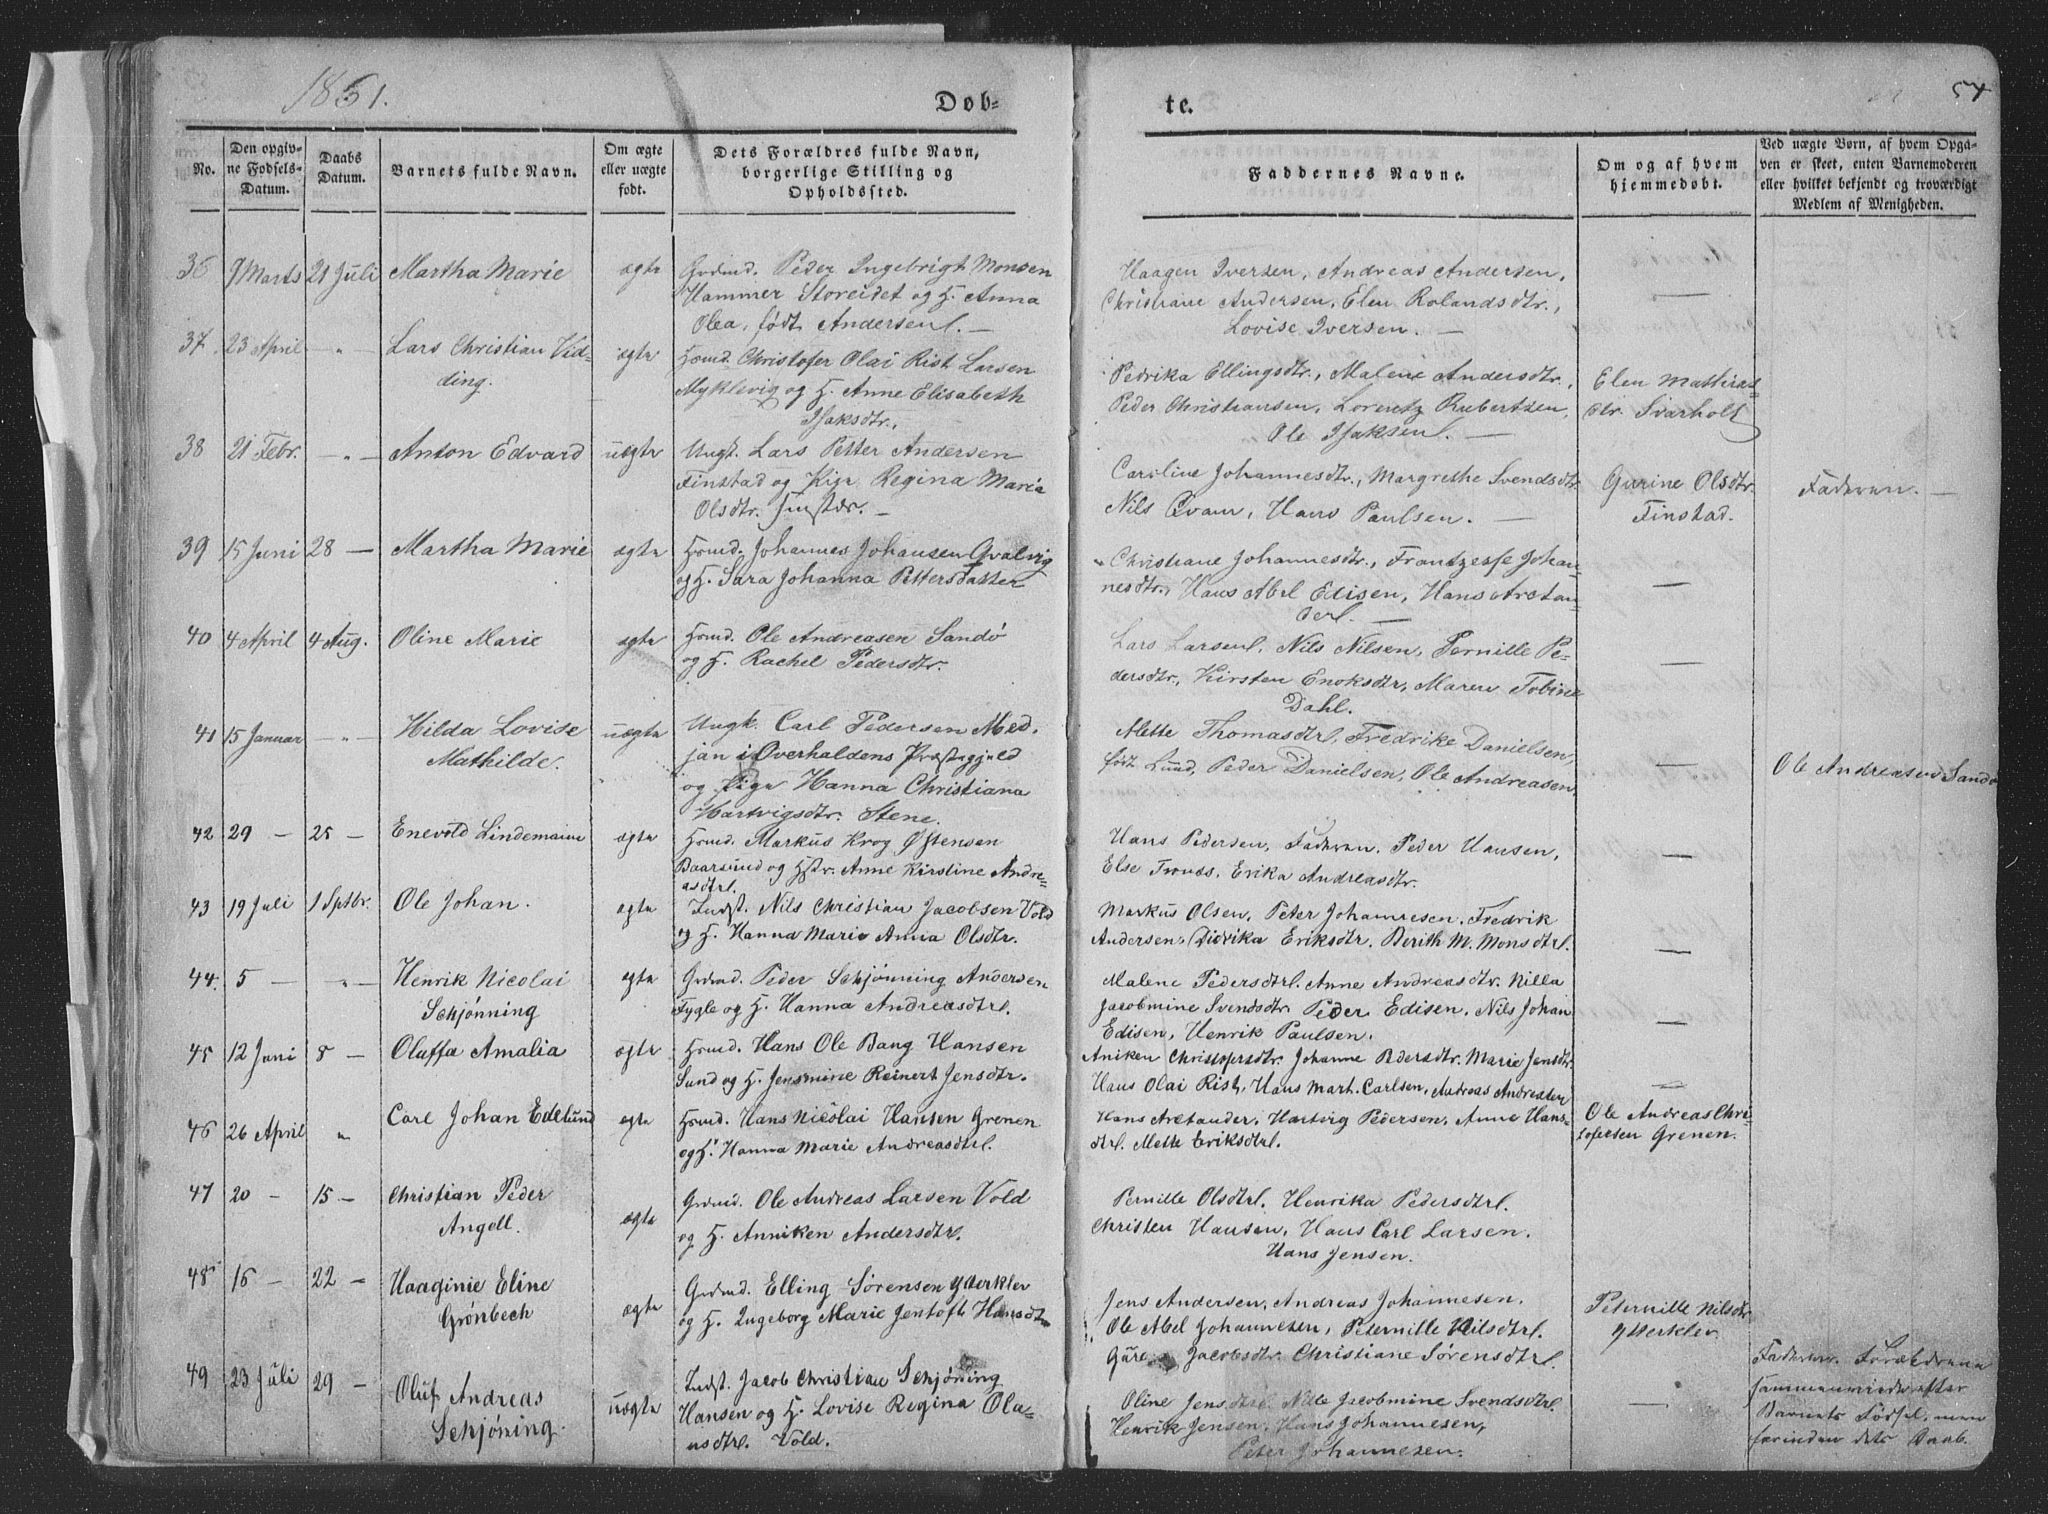 1861.
Døb-
te.
54
No.
Den opgiv-
ne Fødsels-
Datum.
Daabs
Datum.
Barnets fulde Navn.
Om ægte
eller uægte
født.
Dets Forældres fulde Navn,
borgerlige Stilling og
Opholdssted.
Faddernes Navne.
Om og af hvem
hjemmedøbt.
Ved uægte Børn, af hvem Opga-
ven er skeet, enten Barnemoderen
eller hvilket bekjendt og troværdigt
Medlem af Menigheden.
36 9 Marts 21 Juli Martha Marie ægte Grdmd. Peder Ingebrigt Monsen
Hammer Storeidet og H. Anna
Olea, født Andersen. —
Haagen Iversen, Andreas Andersen,
Christiane Andersen, Elen Rolandsdtr.,
Lovise Iversen. —
—
37. 23 April — " — Lars Christian Vid-
ding.
ægte Hsmd. Christofer Olai Rist Larsen
Myklevig og H. Anne Elisabeth
Isaksdtr.
Pedrika Ellingsdtr., Malene Andersdtr.,
Peder Christiansen, Lorentz Rubertsen,
Ole Isaksen. —
Elen Mathias-
dtr. Svarholt
38 21 Febr. — " — Anton Edvard uægte Ungk. Lars Petter Andersen
Finstad og Pige Regina Marie
Olsdtr. —
Caroline Johannesdtr., Margrethe Svendsdtr.
Nils Evam, Hans Paulsen. —
Gurine Olsdtr.
Finstad.
Faderen. —
39 15 Juni 28 — Martha Marie ægte Hsmd. Johannes Johansen Qvalvig
og H. Sara Johanna Pettersdatter
Christiane Johannesdtr., Johan-
nesdtr., Hans Abel Edisen, Hans Aretan-
der. —
—
40 4 April 4 Aug. Oline Marie ægte Hsmd. Ole Andreasen Sandö
og H. Rachel Pedersdtr.
Lars Larsen, Nils Nilsen, Pernille Pe-
dersdtr., Kirsten Enoksdtr, Maren Tobine
Dahl.
—
41 15 Januar — " — Hilda Lovise
Mathilde.
uægte Ungk. Carl Pedersen Med-
jan i Overhaldens Præstegjeld
og Pige Hanna Christiana
Hartvigsdtr. Stene.
Mette Thomasdtr, Fredrike Danielsen,
født Lund, Peder Danielsen, Ole Andreasen.
—
Ole Andreasen Sandö
42 29 — 25 — Enevold Lindemann ægte Hsmd. Markus Krog Østensen
Baarsund og Hstr. Anne Kirstine Andre-
asdtr.
Hans Pedersen, Faderen, Peder Hansen,
Else Tronds, Erika Andreasdtr.
—
43 19 Juli 1 Sptbr. Ole Johan. ægte Indst. Nils Christian Jacobsen Vold
og H. Hanna Marie Anna Olsdtr.
Markus Olsen, Peter Johannesen, Fredrik
Andersen, Didrika Eriksdtr, Berith M. Monsdtr.
—
44. 5 — " — Henrik Nicolai
Schjønning
ægte Grdmd. Peder Schjønning Andersen
Fygle og H. Hanna Andreasdtr.
Malene Pedersdtr. Anne Andreasdtr. Nilla
Jacobmine Svendsdtr. Peder Edisen, Nils Johan
Edisen, Henrik Paulsen.
—
45 12 Juni 8 — Oluffa Amalia ægte Hsmd. Hans Ole Bang Hansen
Sund og H. Jensmine Reinert Jensdtr.
Aniken Christofersdtr. Johanne Pedersdtr. Marie Jensdtr.
Hans Olai Rist, Hans Mart. Carlsen, Andreas Andresen
—
46 26 April " Carl Johan Edelund ægte Hsmd. Hans Nicolai Hansen Grenen
og H. Hanna Marie Andreasdtr.
Hans Aretander, Hartvig Pedersen, Anne Hans-
dtr. Mette Eriksdtr.
Ole Andreas Chri-
stofersen Grenen.
47 20 — 15 — Christian Peder
Angell.
ægte Grdmd. Ole Andreas Larsen Vold
og H. Anniken Andersdtr.
Pernille Olsdtr. Henrika Pedersdtr.
Christen Hansen, Hans Carl Larsen.
Hans Jensen.
48 16 — 22 — Haaginie Eline
Grønbech
ægte Grdmd. Elling Sørensen Ytterklev
og H. Ingeborg Marie Jentoft Hansdtr
Jens Andersen, Andreas Johannesen.
Ole Abel Johannesen, Peternille Nilsdtr.
Jacobsdtr. Christiane Sørensdtr.
Peternille Nilsdtr.
Ytterklev.
49 23 Juli 29 — Oluf Andreas
Schjøning.
uægte Indst. Jacob Christian Schjøning
Hansen og H. Lovise Regina Ola-
usdtr. Vold.
Oline Jensdtr. Nille Jacobmine Svendsdtr.
Henrik Jensen, Hans Johannesen,
Peter Johannesen.
—
Faderen. Forældrene
sammenviede efter
Barnets Fødsel, men
forinden dets Daab.